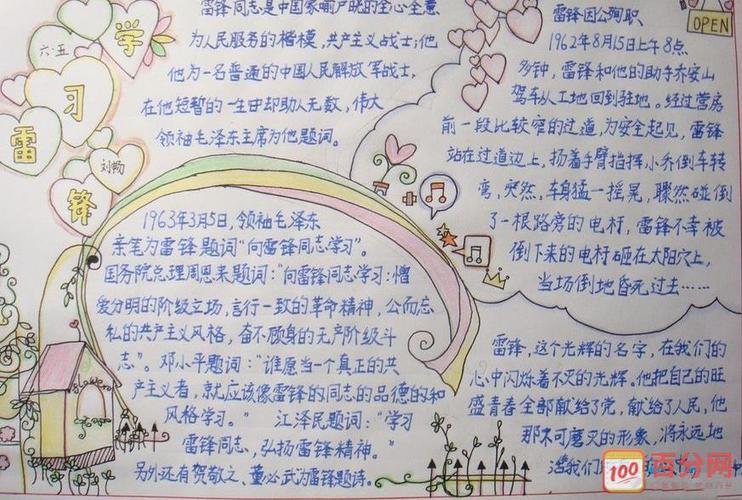 学
习
雷
锋
六·五
刘畅
雷锋同志是中国家喻户晓的全心全意
为人民服务的楷模,共产主义战士;他
他为一名普通的中国人民解放军战士,
在他短暂的一生中却助人无数,伟大
领袖毛泽东主席为他题词。
1963年3月5日,领袖毛泽东
亲笔为雷锋题词"向雷锋同志学习"。
国务院总理周恩来题词:"向雷锋同志学习:憎
爱分明的阶级立场,言行一致的革命精神,公而忘
私的共产主义风格,奋不顾身的无产阶级斗
志"。邓小平题词:"谁愿当一个真正的共
产主义者,就应该像雷锋的同志的品德的和
风格学习。" 江泽民题词:"学习
雷锋同志,弘扬雷锋精神。"
另外还有贺敬之、董必武为雷锋题诗。
OPEN
雷锋因公殉职
1962年8月15日上午8点
多钟,雷锋和他的助手乔安山
驾车从工地回到驻地。经过营房
前一段比较窄的过道,为安全起见,雷锋
站在过道边上,扬着手臂指挥小乔倒车转
弯,突然,车身猛一摇晃,骤然碰倒
了一根路旁的电杆,雷锋不幸被
倒下来的电杆砸在太阳穴上,
当场倒地昏死过去……
雷锋,这个光辉的名字,在我们的
心中闪烁着不灭的光辉。他把自己的旺
盛青春全部献给了党,献给了人民,他
那不可磨灭的形象,将永远地
活我们
100
百分网